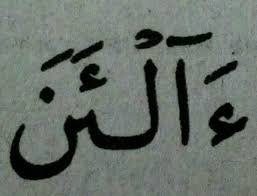 ءَآلْـَٔنَ